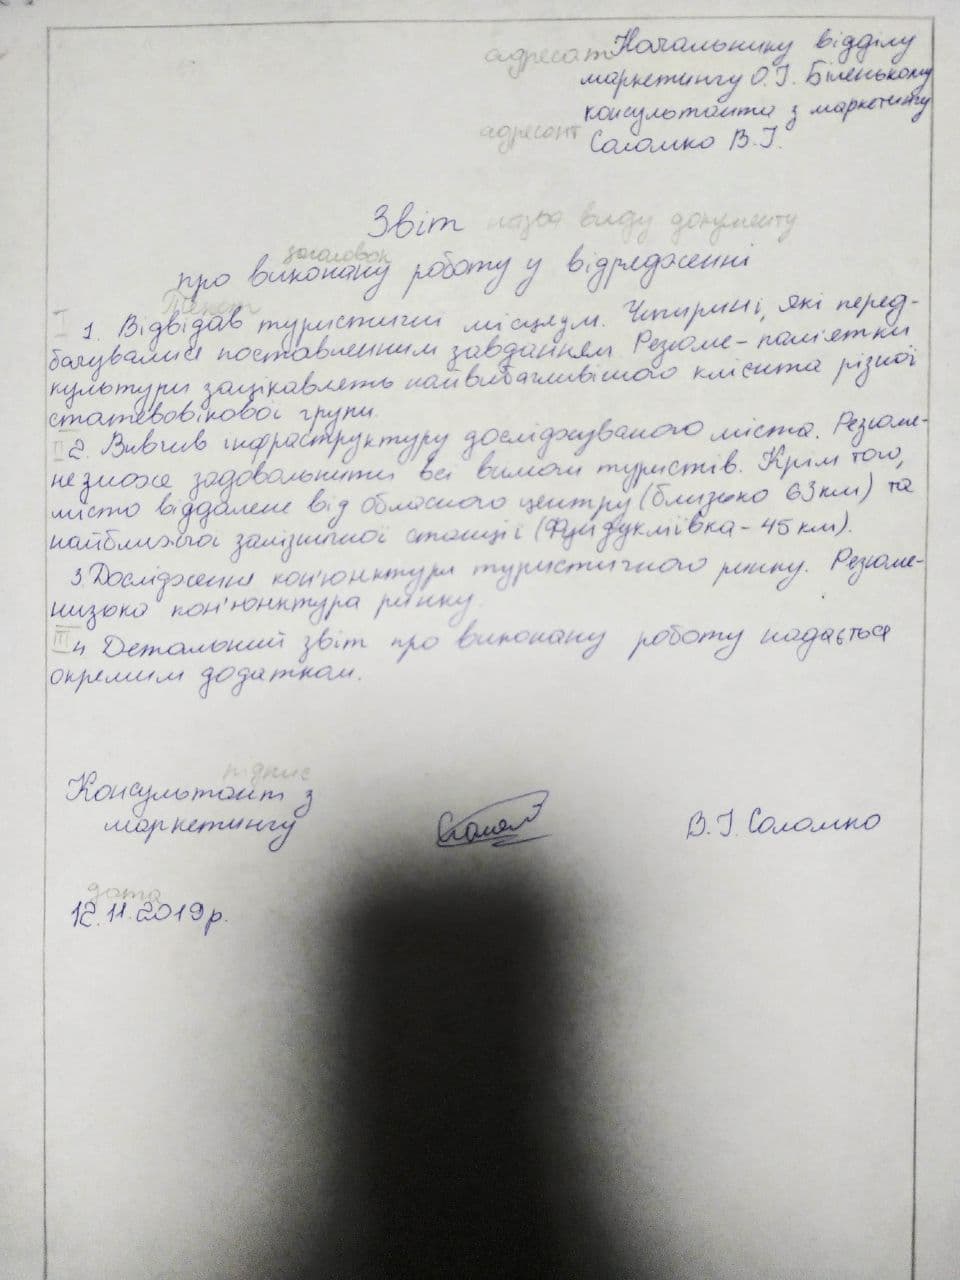 адресат Начальнику відділу
маркетингу О.І. Біленькому
консультанта з маркетингу
адресант Соломко В.І.
Звіт назва виду документу
заголовок
про виконану роботу у відрядженні
Текст
I 1. Відвідав туристичні місця м. Чигирині, які перед-
бачувалися поставленим завданням. Резюме - пам'ятки
культури зацікавлять найвибагливішого клієнта різної
статевовікової групи.
II 2. Вивчив інфраструктуру досліджуваного міста. Резюме-
не зможе задовольнити всі вимоги туристів. Крім того,
місто віддалене від обласного центру (близько 63 км) та
найближчої залізничної станції (Фундукліївка - 45 км).
3 Дослідження кон'юнктури туристичного ринку. Резюме-
низька кон'юнктура ринку.
III 4 Детальний звіт про виконану роботу надається
окремим додатком.
підпис
Консультант з
маркетингу
В.І. Соломко
дата
12.11.2019р.